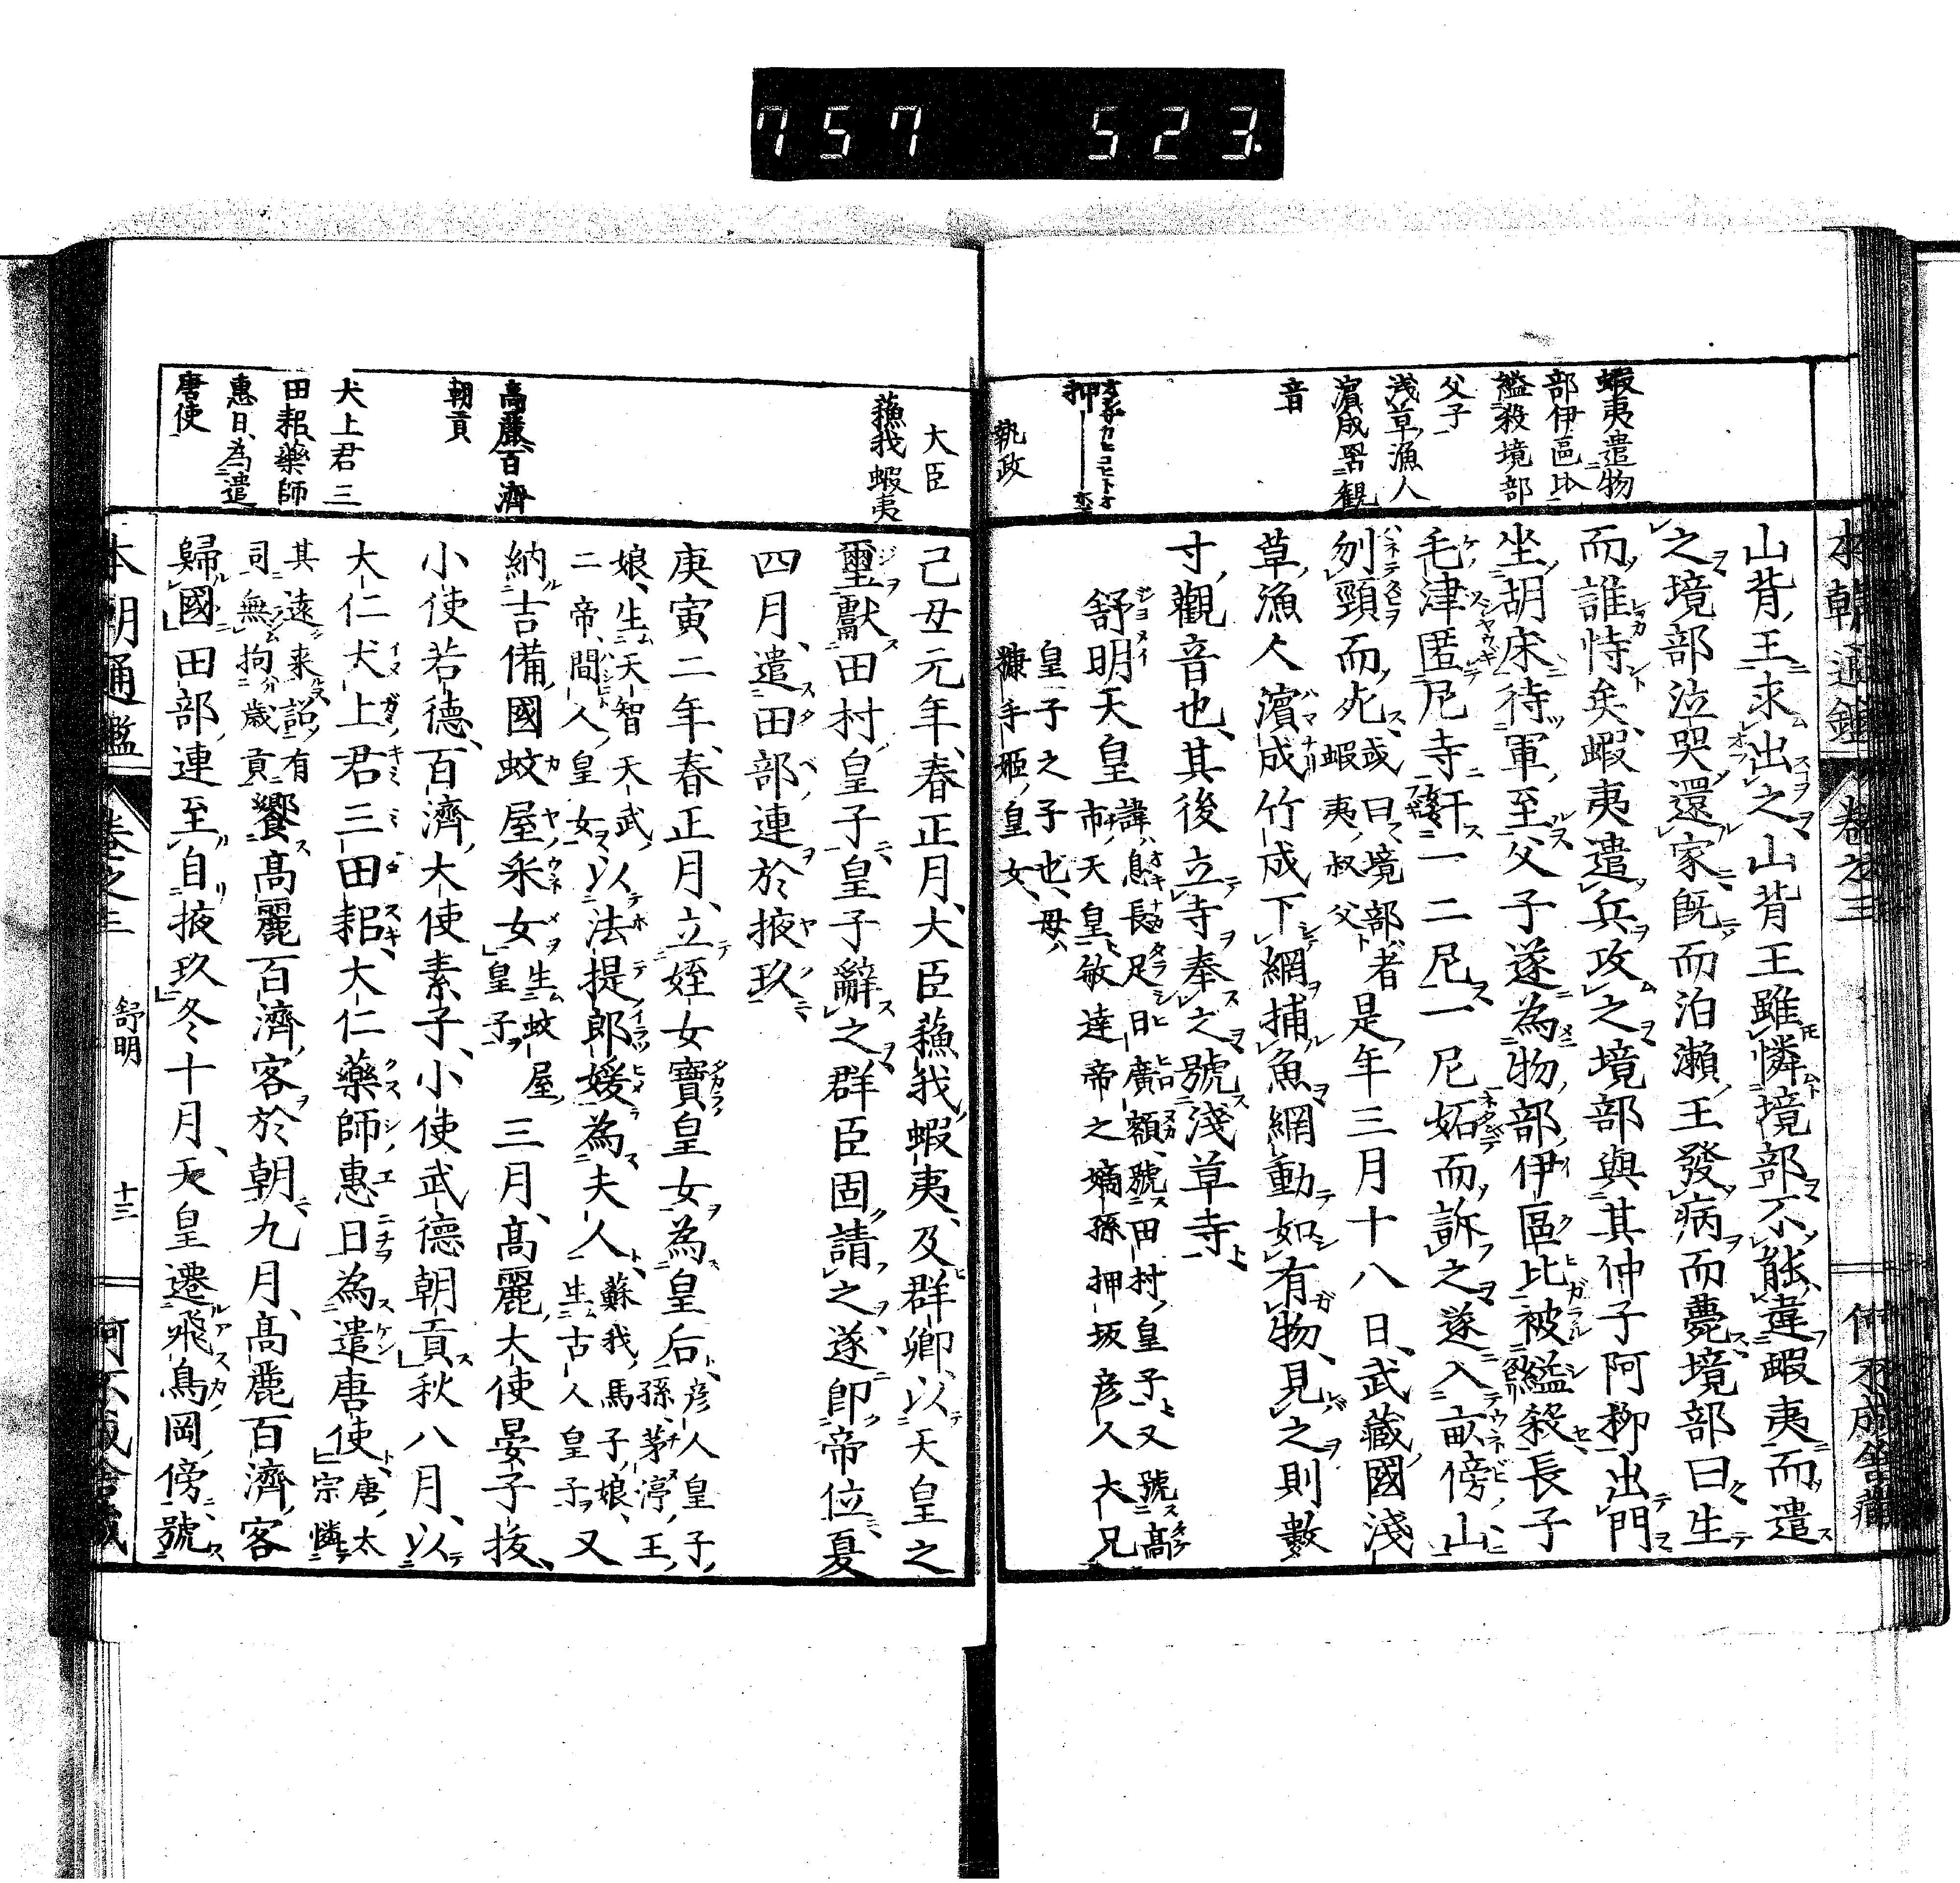 757 523.
蝦夷遣物
部伊區比
縊殺境部
父子
浅草漁人
濱成罟観
音
押
執政
山背王求出之山背王雖憐境部不能違蝦夷而遣
之境部泣哭還家既而泊瀬王發病而薨境部曰生
而誰恃矣蝦夷遣兵攻之境部與其仲子阿椰出門
坐胡床待軍至父子遂為物部伊區比被縊殺長子
毛津匿尼寺奸一二尼一尼妬而訴之遂入畝傍山
刎頸而死或曰境部者
蝦夷叔父
是年三月十八日武藏國淺
草漁人濱成竹成下網捕魚網動如有物見之則數
寸觀音也其後立寺奉之號淺草寺
舒明天皇
諱息長足日廣額號田村皇子又號高
市天皇敏達帝之嫡孫押坂彦人大兄
皇子之子也母
糠手姫皇女
大臣
蘓我蝦夷
高麗百濟
朝貢
犬上君三
田耜藥師
惠日為遣
唐使
己丑元年春正月大臣蘓我蝦夷及群卿以天皇之
璽獻田村皇子皇子辭之群臣固請之遂即帝位夏
四月遣田部連於掖玖
庚寅二年春正月立姪女寶皇女為皇后
彦人皇子
孫茅渟王
娘生天智天武以法提郎媛為夫人
蘇我馬子娘
生古人皇子
又
二帝間人皇女
納吉備國蚊屋采女
生蚊屋
皇子
三月高麗大使晏子抜
小使若德百濟大使素子小使武德朝貢秋八月以
大仁犬上君三田耜大仁藥師惠日為遣唐使
唐太
宗憐
其遠来詔有
司無拘歳貢
饗高麗百濟客於朝九月高麗百濟客
歸國田部連至自掖玖冬十月天皇遷飛鳥岡傍號
本朝通鑑
卷之三
舒明
十三